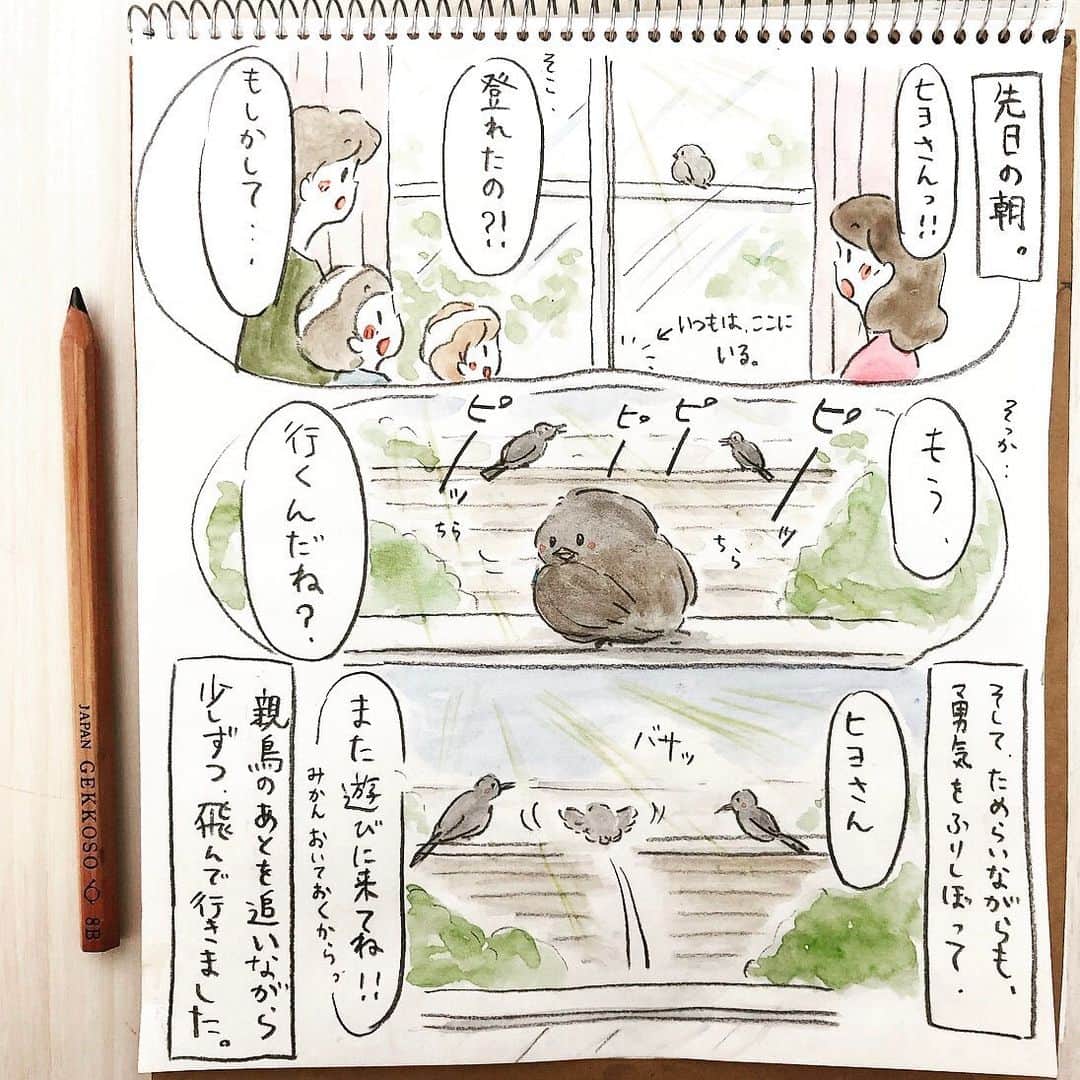 先日の朝。
ヒヨさんっ!!
そこ・・
登れたの?!
もしかして・・・
いつもは、ここに
いる。
そっか・・
もう、
ピーッ
ピ
ピ
ピーッ
ちら
ちら
行くんだね?
そして、ためらいながらも、
勇気をふりしぼって、
ヒヨさん
バサッ
また遊びに来てね!!
みかんおいておくからっ
親鳥のあとを追いながら
少しずつ、飛んで行きました。
JAPAN GEKKOSO 8B